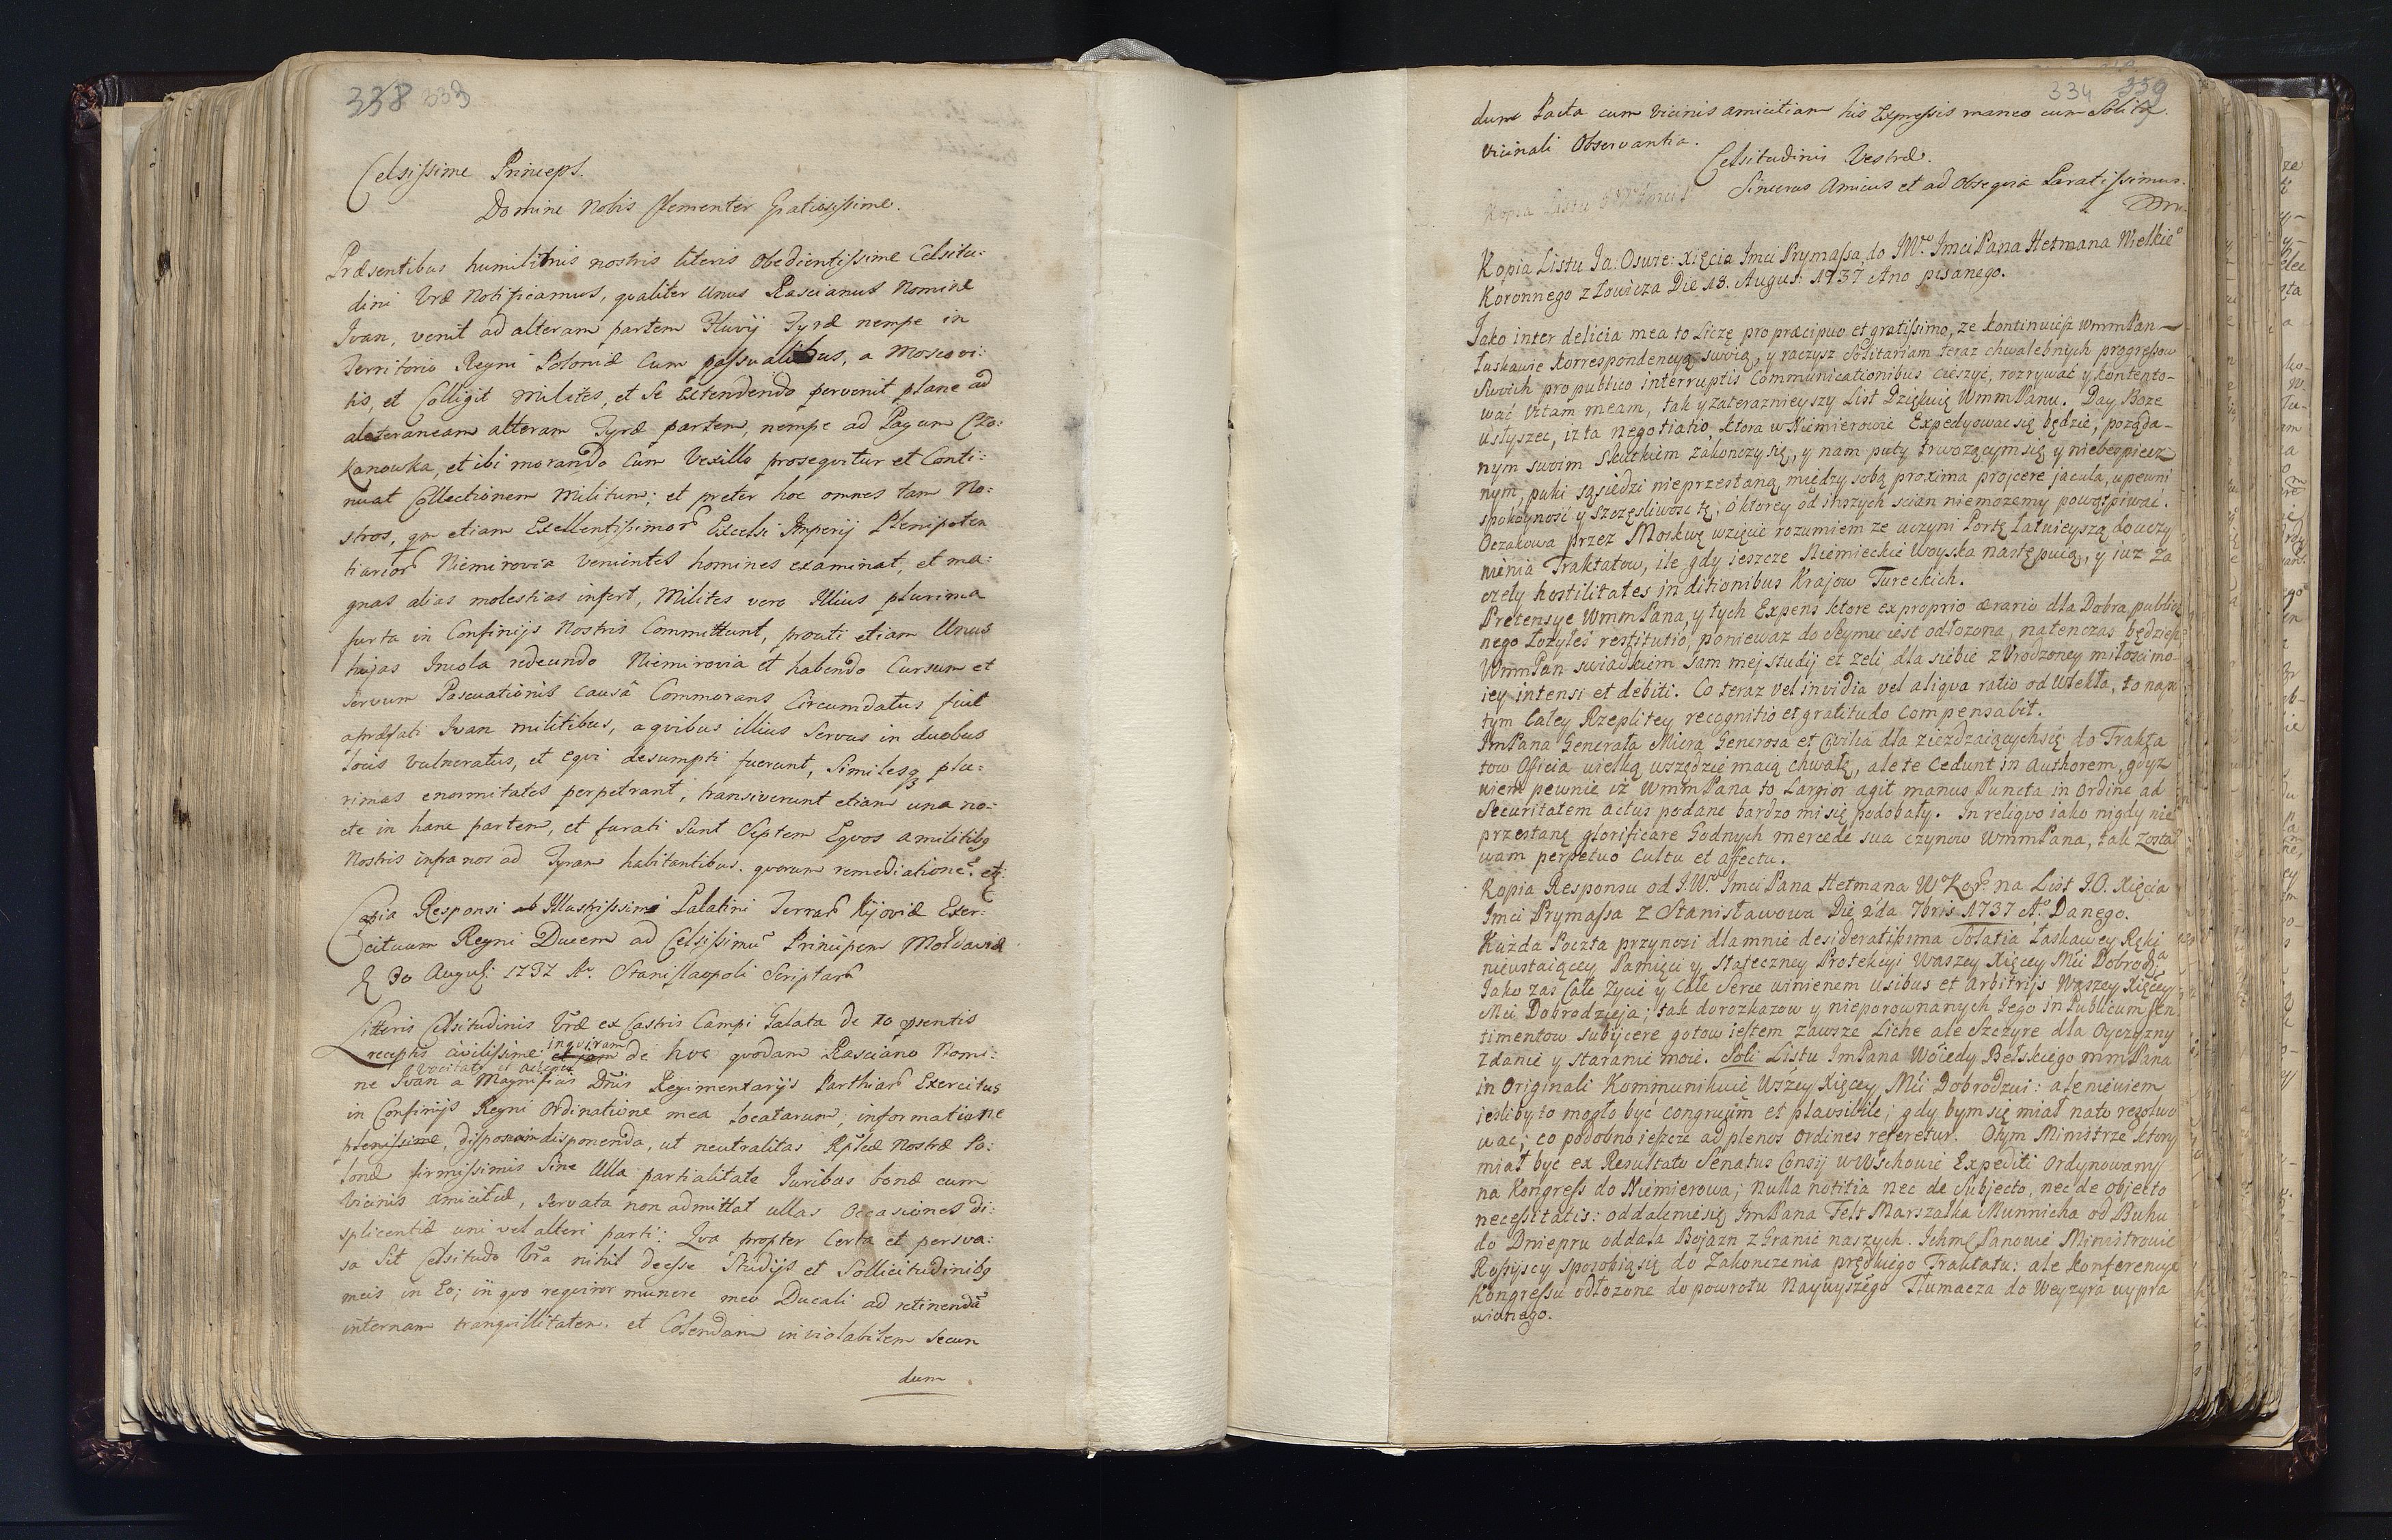 338 333
Celsissime Princeps.
Domine Nobis Clementer Gratiosissime.
Præsentibus humilibus nostris literis Obedientissime Celsitu:
dini Vræ Notificamus, qualiter Unus Rascianus Nomine
Ivan, venit ad alteram partem Fluvij Tyræ nempe in
Territorio Regni Poloniæ Cum passualibus, a Moscovi:
tis, et Colligit Milites, et Se Extendendo pervenit plane ad
alteram Tyræ partem, nempe ad Pagum Czo:
kanowka, et ibi morando Cum Vexillo prosequitur et Conti:
nuat Collectionem Militum; et preter hoc omnes tam No:
stros, qm etiam Excellentissimor Excelsi Imperij Plenipoten
tiarior Niemirovia venientes homines examinat, et ma:
gnas alias molestias infert, Milites vero Illius plurima
furta in Confinijs Nostris Committunt, prouti etiam Unus
hujas Incola redeundo Niemirovia et habendo Cursum et
Servum Pascuationis causâ Commorans Circumdatus fuit
a præfati Ivan militibus, a quibus illius Servus in duobus
locis vulneratus, et Equi desumpti fuerunt, Similesq plu:
rimas enormitates perpetrant, transiverunt etiam una no:
cte in hanc partem, et furati Sunt Septem Equos a militibq
Nostris infra nos ad Tyram habitantibus. quorum remediatione. etc
Copia Responsi ab Illustrissimi Palatini Terrar Kijoviæ Exer:
cituum Regni Ducem ad Celsissimu Principem Moldaviæ
30 Augusti 1737 Ao. Stanislaopoli Scriptar
Litteris Celsitudinis Vræ ex Castris Campi Galata de 20 psentis
receptis civilissime inquiram de hoc quodam Rasciano Nomi:
ne Ivan a Magnificis Dnis Regimentarijs Parthiar Exercitus
in Confinijs Regni Ordinatione mea locatarum, informatione
plenissime, disponenda, ut neutralitas Rplcæ Nostræ Po:
lonæ firmissimis Sine Ulla partialitate Juribus bonæ cum
Vicinis amicitiæ, servata non admittat ullas Occasiones di:
splicentiæ uni vel alteri parti: Qva propter Certa et persva:
sa Sit Celsitudo Vra nihil deesse Studijs et Sollicitudinibq
meis in Eo; in quo requiror munere meo Ducali ad retinenda
internam tranquillitatem. et Colendam inviolabilem Secun
dum
334 359
dum Pacta cum vicinis amicitiam his Expressis maneo cum Solita
vicinali Observantia.
Celsitudinis Vestræ.
Sincerus Amicus et ad Obsequia Paratissimus.
Kopia Listu
Kopia Listu Ja. Osure: Xięcia Imci Prymassa do JWo Imci Pana Hetmana Wielkieo
Koronnego z Łowicza Die 18. August: 1737 Ano pisanego.
Jako inter delicia mea to Liczę pro præcipuo et gratissimo, ze kontinuiesz WmmPan
łaskawie korrespondencyą swoię, y raczysz Solitariam teraz chwalebnych progressow
Swoich pro publico interruptis Communicationibus cieszyć, rozrywać y kontento-
wać vitam meam, tak y za teraznieyszy List Dziękuię WmmPanu. Day Boze
usłyszec, iz ta negotiatio ktora w Niemierowie Expedyowac się będzie, poząda-
nym swoim Skutkiem zakonczy się, y nam puty trwozącym się y niebespiecz
nym, puki sąsiedzi nieprzestaną między sobą proxima projcere jacula, upewni
spokoynosc y szczęsliwosc tę, o ktorey od inszych scian niemozemy powątpiwac.
Oczakowa przez Moskwę wzięcie rozumiem ze uczyni Portę łatwieyszą do uczy
nienia Traktatow, ile gdy ieszcze Niemieckie Woyska następuią, y iuz za
częły hostilitates in ditionibus Krajow Tureckich.
Pretensye WmmPana, y tych Expens ktore ex proprio ærario dla Dobra public
nego łozyłes restitutio, poniewaz do Seymu iest odłozona, natenczas będziesz
WmmPan swiadkiem Sam mej studij et zeli dla siebie z Vrodzoney miłosci mo-
iey intensi et debiti. Co teraz vel invidia vel aliqva ratio odwlekła, to nap
tym Całey Rzeplitey recognitio et gratitudo compensabit.
ImPana Generała Miera Generosa et Civilia dla ziezdzaiącychsię do Trakta
tow Officia wielką wszędzie maią chwałę, ale te Cedunt in Authorem, gdyz
wiem pewnie iz WmmPana to Largior agit manus Puncta in Ordine ad
Securitatem actus podane bardzo mi się podobały. In reliqvo iako nigdy nie
przestanę glorificare Godnych mercede sua czynow WmmPana, tak zosta
wam perpetuo Cultu et affectu.
Kopia Responsu od J.W. Imci Pana Hetmana W Kor. na List J.O. Xięcia
Imci Prymassa z Stanisławowa Die 2da 7bris 1737 Ao. Danego.
Kazda Poczta przynosi dla mnie desideratissima Solatia łaskawey Ręki
nieustaiącey Pamięci y stateczney Protekcyi Waszey Xięcey Mci Dobrodz:a
Jako zas Całe Zycie y Całe Serce winienem Usibus et Arbitrijs Waszey Xięcey
Mci Dobrodzieja; tak do rozkazow y nieporownanych Jego in Publicum Sen
timentow Subijcere gotow iestem zawsze Liche ale Szczyre dla Oyczyzny
Zdanie y staranie moie. Soli Listu ImPana Woiedy Bełskiego mmPana
in Originali Kommunikuię Wszey Xięcey Mci Dobrodzui: ale niewiem
iesliby to mogło być congruum et plausibile; gdy bym się miał na to rezolwo
wac; co podobno ieszcze ad plenos ordines referetur. O tym Ministrze ktory
miał byc ex Resultato Senatus Consij w Wschowie Expediti Ordynowany
na Kongress do Niemierowa; nulla notitia nec de Subjecto, nec de objecto
necessitatis: oddalenie się ImPana Felt Marszałka Munnicha od Buhu
do Dniepru oddala Bojazn z Granic naszych. Ichm Panowie Ministrowie
Rossyscy sposobią się do Zakonczenia prędkiego Traktatu: ale konferencye
Kongressu odłozone do powrotu Naywyszego Tłumacza do Weyzyra wypra
wionego.